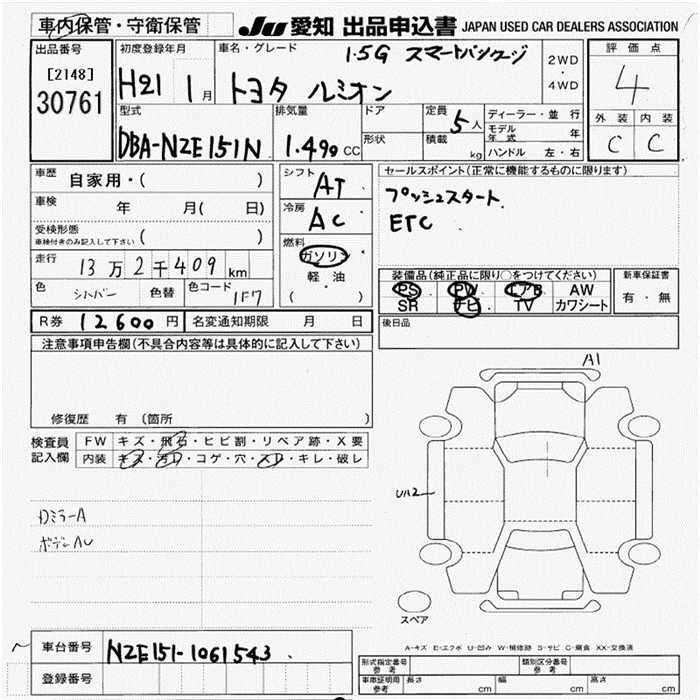 車内保管・守衛保管
JU 愛知 出品申込書 JAPAN USED CAR DEALERS ASSOCIATION
出品番号
[2148]
30761
初度登録年月
H21 1月
車名・グレード
1.5G スマートパッケージ
トヨタ ルミオン
2WD
・
4WD
評価点
4
外装 内装
C C
型式
DBA-NZE151N
排気量
1.490 CC
ドア
形状
定員
5人
積載
kg
ディーラー・並行
モデル年式 年
ハンドル 左・右
車歴
自家用・( )
車検 年 月( 日)
受検形態
車検付きのみ記入して下さい ( )
走行
13万2千409km
色 シルバー 色替 色コード 1F7
シフト
AT
冷房
AC
燃料
ガソリン
軽・油
( )
セールスポイント(正常に機能するものに限ります)
プッシュスタート
ETC
装備品(純正品に限り○をつけてください)
PS PW エアB AW
SR ナビ TV カワシート
新車保証書
有・無
R券 12600円 名変通知期限 月 日
後日品
注意事項申告欄(不具合内容等は具体的に記入して下さい)
修復歴 有 (箇所
検査員記入欄
FW キズ・飛石・ヒビ割・リペア跡・X要
内装 キズ・汚レ・コゲ・穴・スレ・キレ・破レ
DミラーA
ボデーAU
A1
UA2
スペア
A-キズ E-エクボ U-凹み W-補修跡 S-サビ C-腐食 XX-交換済
車台番号 NZE151-1061543
登録番号
形式指定番号 参考
類別区分番号 参考
車庫証明用 参考 長さ cm 幅 cm 高さ cm